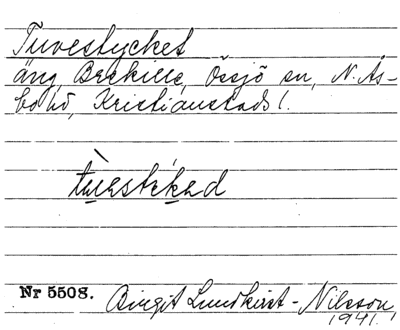 Tuvestycket
äng, Beckille, Össjö sn, N. Ås-
bo hd, Kristianstads l.
tùestékad
Nr 5508. Birgit Lundkvist-Nilsson
1941.